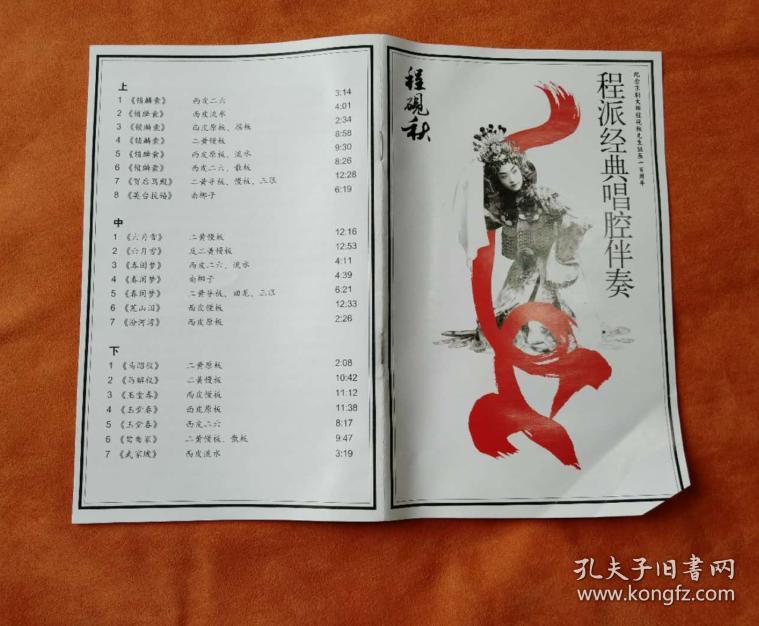 上
1 《锁麟囊》 西皮二六 3:14
2 《锁麟囊》 西皮流水 4:01
3 《锁麟囊》 西皮原板、摇板 2:34
4 《锁麟囊》 二黄慢板 8:58
5 《锁麟囊》 西皮原板、流水 9:30
6 《锁麟囊》 西皮二六、散板 8:26
7 《贺后骂殿》 二黄导板、慢板、三眼 12:28
8 《英台抗婚》 南梆子 6:19
中
1 《六月雪》 二黄慢板 12:16
2 《六月雪》 反二黄慢板 12:53
3 《春闺梦》 西皮二六、流水 4:11
4 《春闺梦》 南梆子 4:39
5 《春闺梦》 二黄导板、回龙、三眼 6:21
6 《荒山泪》 西皮慢板 12:33
7 《汾河湾》 西皮原板 2:26
下
1 《马昭仪》 二黄原板 2:08
2 《马昭仪》 二黄慢板 10:42
3 《玉堂春》 西皮慢板 11:12
4 《玉堂春》 西皮原板 11:38
5 《玉堂春》 西皮二六 8:17
6 《鸳鸯冢》 二黄慢板、散板 9:47
7 《武家坡》 西皮流水 3:19
程砚秋
纪念京剧大师程砚秋先生诞辰一百周年
程派经典唱腔伴奏
孔夫子旧书网
www.kongfz.com